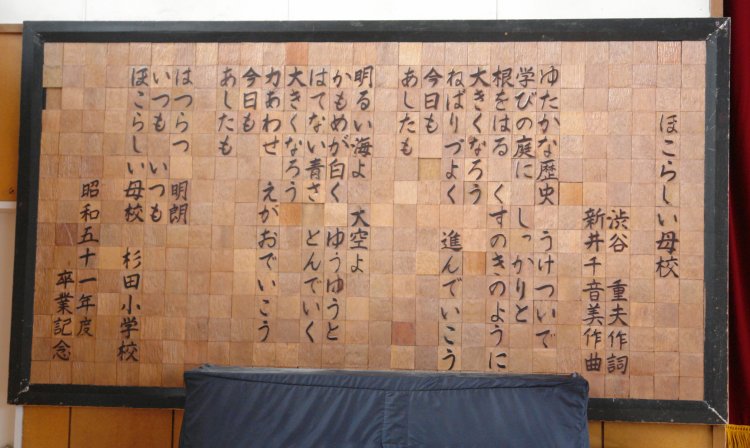 ほこらしい母校
渋谷　重夫作詞
新井千音美作曲
ゆたかな歴史　うけついで
学びの庭に　しっかりと
根をはる　くすのきのように
大きくなろう
ねばりづよく　進んでいこう
今日も
あしたも
明るい海よ　大空よ
かもめが白く　ゆうゆうと
はてない青さ　とんでいく
大きくなろう
力あわせ　えがおでいこう
今日も
あしたも
はつらつ　明朗
いつも　いつも
ほこらしい母校　杉田小学校
昭和五十一年度
卒業記念